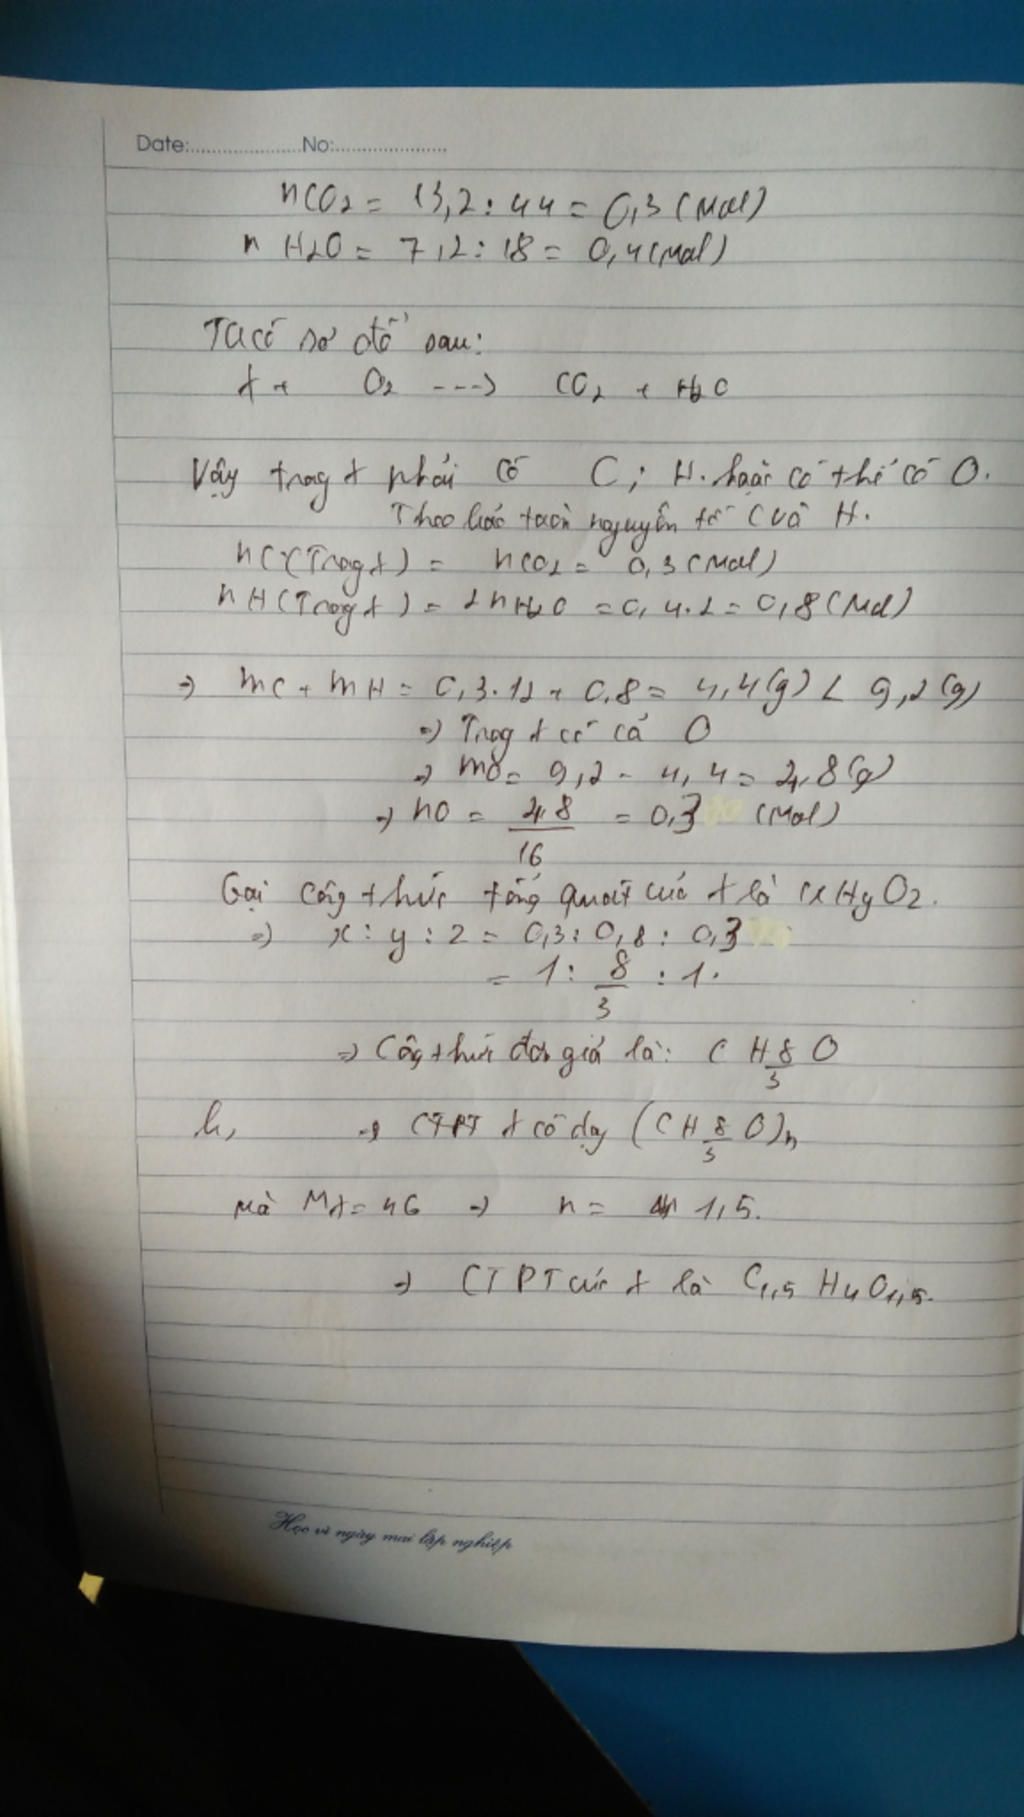 Date:.....................No:.....................
nCO2 = 13,2 : 44 = 0,3 (Mol)
n H2O = 7,2 : 18 = 0,4 (Mol)
Ta có sơ đồ sau:
X + O2 ---> CO2 + H2O
Vậy trong X phải có C; H. hoặc có thể có O.
Theo bảo toàn nguyên tố C và H.
nC (Trong X) = nCO2 = 0,3 (Mol)
nH (Trong X) = 2nH2O = 0,4.2 = 0,8 (Mol)
=> mC + mH = 0,3.12 + 0,8 = 4,4 (g) < 9,2 (g)
=> Trong X có cả O
=> mO = 9,2 - 4,4 = 4,8 (g)
=> nO = 4,8/16 = 0,3 (Mol)
Gọi công thức tổng quát của X là CxHyOz.
=> x : y : z = 0,3 : 0,8 : 0,3
= 1 : 8/3 : 1.
=> Công thức đơn giản là: C H8/3 O
b, => CTPT X có dạng (CH8/3O)n
Mà MX = 46 => n = 1,5.
=> CTPT của X là C1,5 H4 O1,5.
Học vì ngày mai lập nghiệp